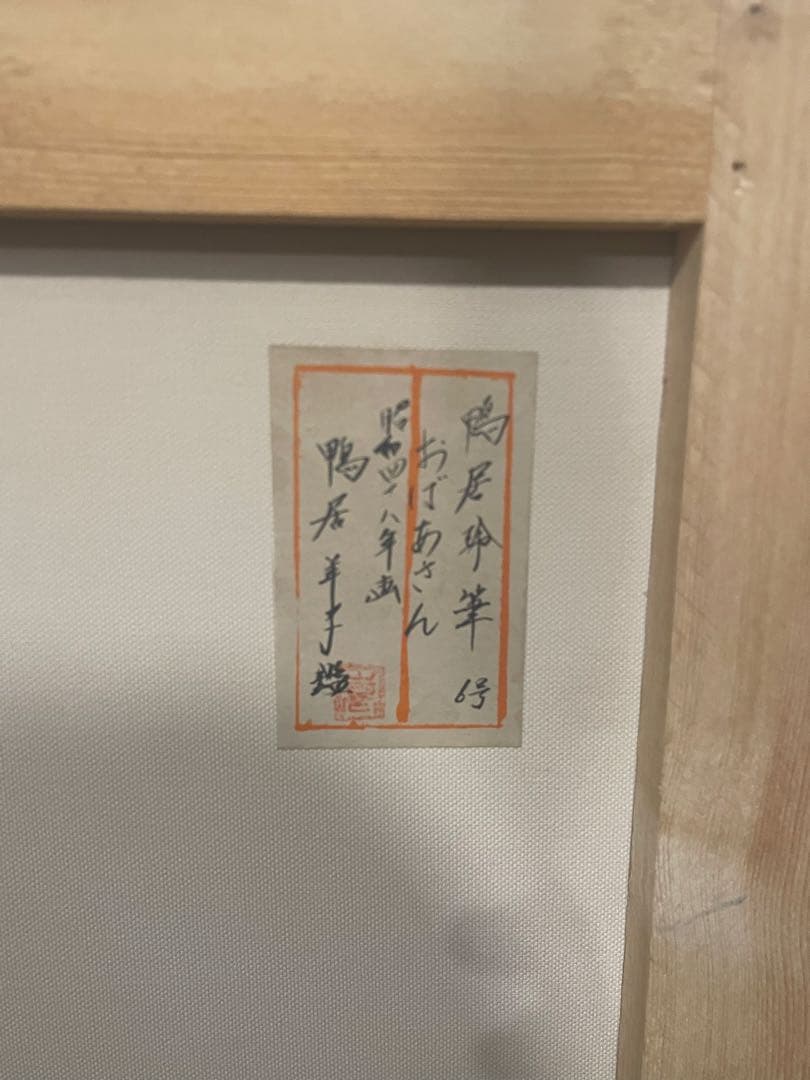 鴨居玲筆 6号
おばあさん
昭和四十八年画
鴨居羊子鑑